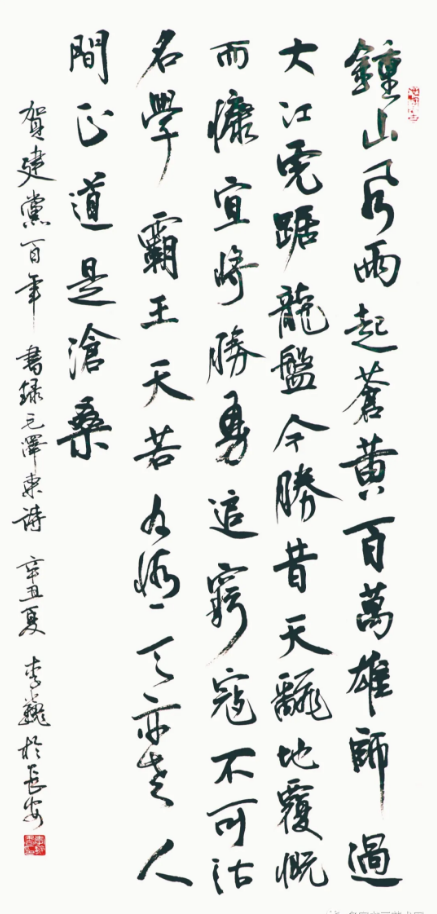 鍾山风雨起蒼黄百萬雄師過
大江虎踞龍盤今勝昔天翻地覆慨
而慷宜将勝勇追窮寇不可沽
名學霸王天若有情天亦老人
間正道是滄桑
賀建黨百年 書録毛澤東詩 辛丑夏 李巍於長安